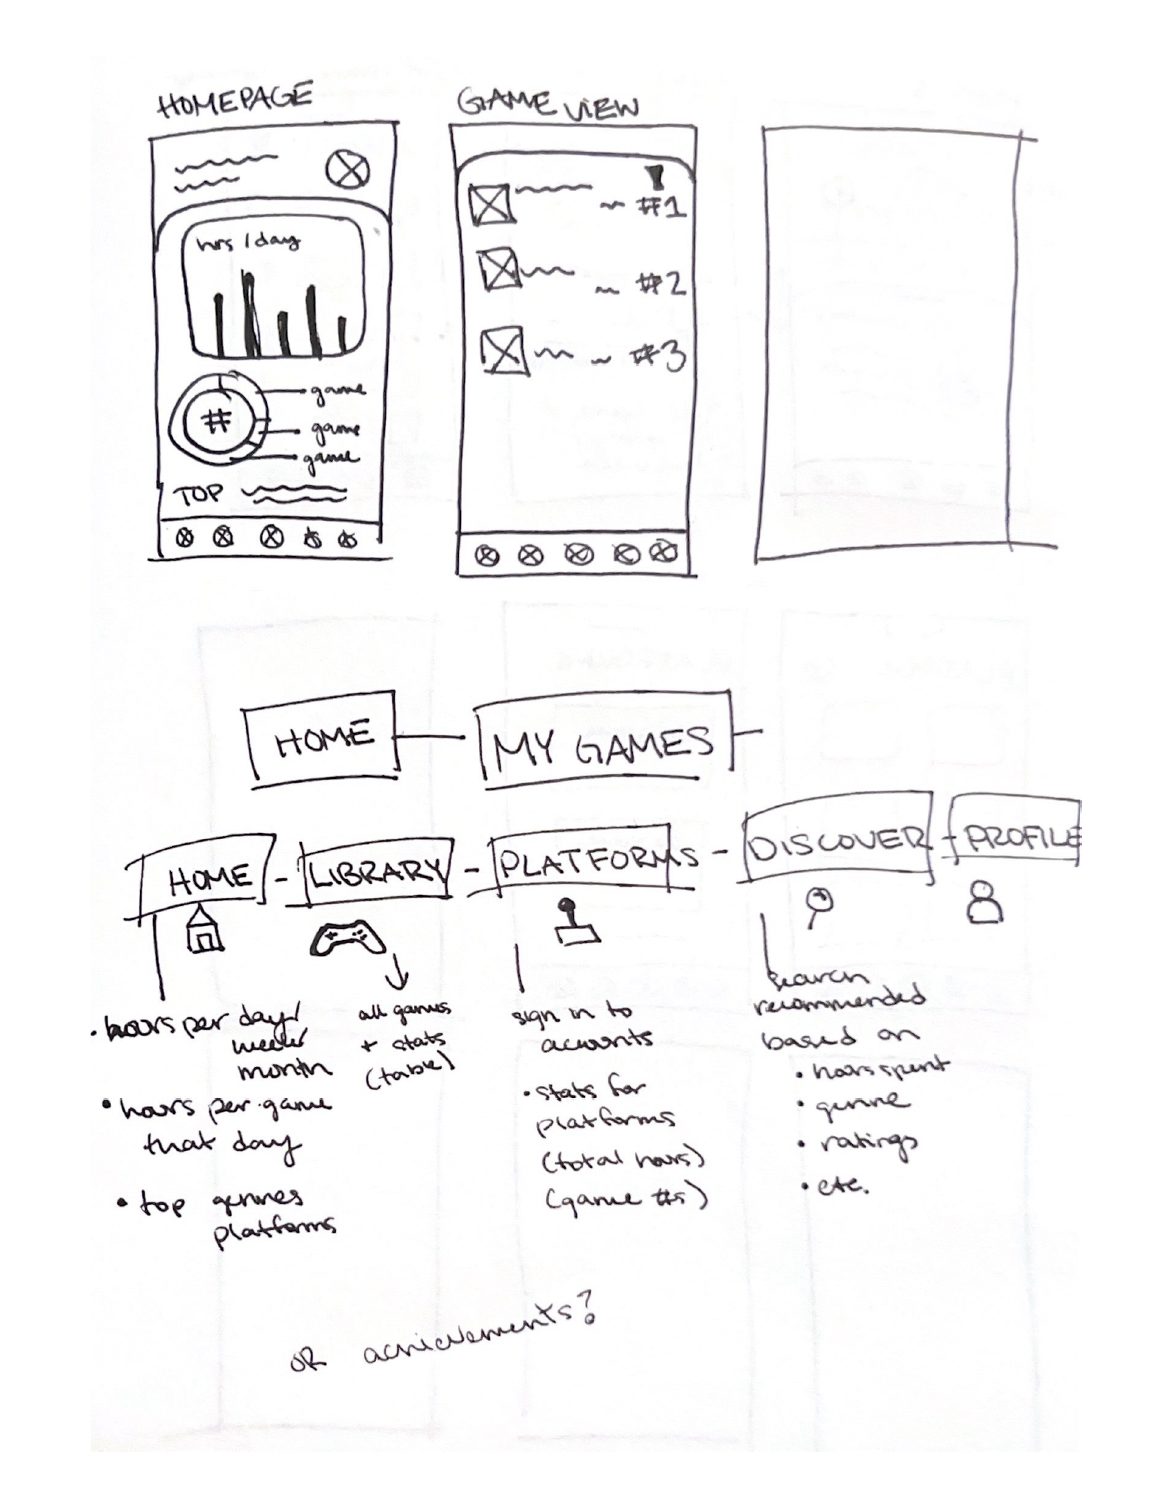 HOMEPAGE
GAME VIEW
hrs / day
#
game
game
game
TOP
#1
#2
#3
HOME
MY GAMES
HOME - LIBRARY - PLATFORMS - DISCOVER - PROFILE
• hours per day/
week/
month
• hours per game
that day
• top genres
platforms
all games
+ stats
(table)
sign in to
accounts
• stats for
platforms
(total hours)
(game #s)
search
recommended
based on
• hours spent
• genre
• ratings
• etc.
OR achievements?